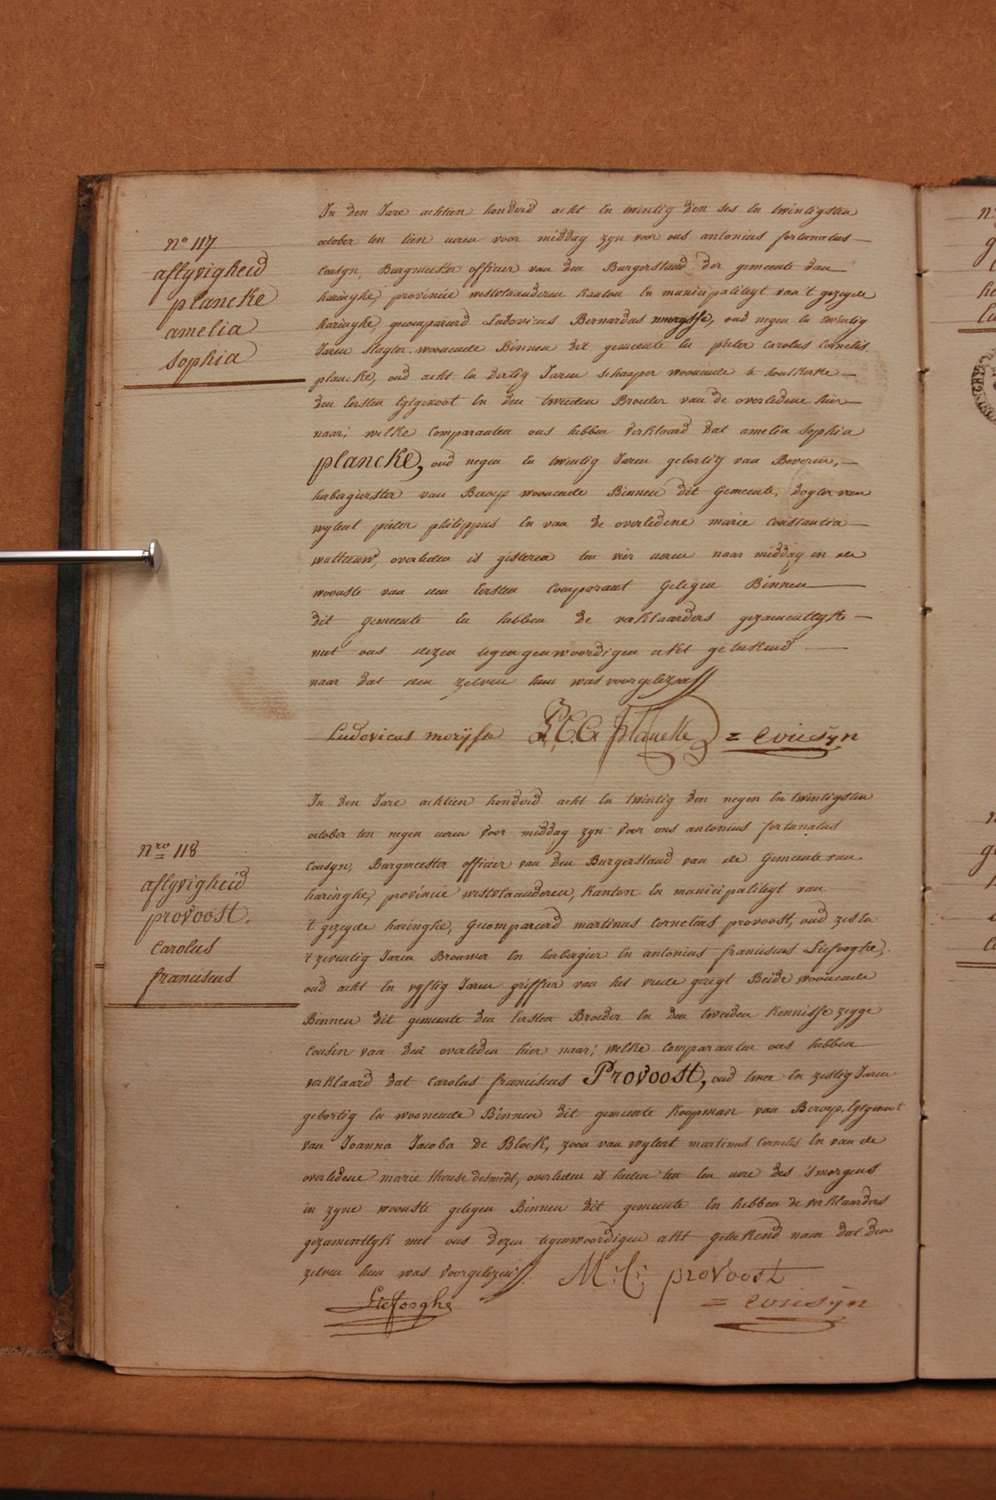 n° 117
aflyvigheid
plancke
amelia
sophia
In den Jare achtien honderd acht en twintig den ses en twintigsten
october ten tien ueren voor middag zyn voor ons antonius fortunatus
Cousyn, Burgmeester officier van den Burgerstand der gemeente van
haringhe provincie westvlaanderen kanton en municipaliteyt van 't gezeyde
haringhe, gecompareerd Ludovicus Bernardus merysse, oud negen en twintig
Jaren slagter woonende Binnen dit gemeente en pieter Carolus Cornelis
plancke, oud acht en dertig Jaren schaeper woonende te houtkerke
den eersten eygenoot en den tweeden Broeder van de overledene hier
naar; welke comparanten ons hebben verklaard dat amelia sophia
plancke, oud negen en twintig Jaren gebortig van Beveren,
habergierster van Beroep woonende Binnen dit gemeente, dogter van
wylent pieter philippus en van de overledene marie Constantia
wulleeuw, overleden is gisteren ten vier ueren naar middag in de
wooнste van den eersten Comparant gelegen Binnen
dit gemeente en hebben de verklaarders gezamentlyke
met ons dezen tegengenwoordigen akt geteekend
naar dat den zelven hun was voorgelezen
Ludovicus meryssse P: C. C. plancke = Cousyn
nro 118
aflyvigheid
provoost.
Carolus
franciscus
In den Jare achtien honderd acht en twintig den negen en twintigsten
october ten negen ueren voor middag zyn voor ons antonius fortunatus
Cousyn, Burgmeester officier van den Burgerstand van de Gemeente van
haringhe, provincie westvlaanderen, Kanton en municipaliteyt van
't gezeyde haringhe, Gecompareerd martinus Cornelius provoost, oud zes en
't zeventig Jaren Brouwer en herbergier en antonius franciscus Liefooghe,
oud acht en vyftig Jaren griffier van het vrede geregt Beide woonende
Binnen dit gemeente den eersten Broeder en den tweeden kennisse zegge
Cousin van den overleden hier naar; welke comparanten ons hebben
verklaard dat Carolus franciscus Provoost, oud twee en zestig Jaren
gebortig en woonende Binnen dit gemeente Koopman van Beroep, Eygenoot
van Joanna Jacoba De Block, zoon van wylent martinus Cornelis en van de
overledene marie therese Desmedt, overleden is heden ten een uere des 's morgens
in zyne wooнste gelegen Binnen dit gemeente en hebben de verklaarders
gezamentlyk met ons dezen tegenwoordigen akt geteekend naar dat den
zelven hun was voorgelezen. M: C: provoost
Liefooghe = Cousyn